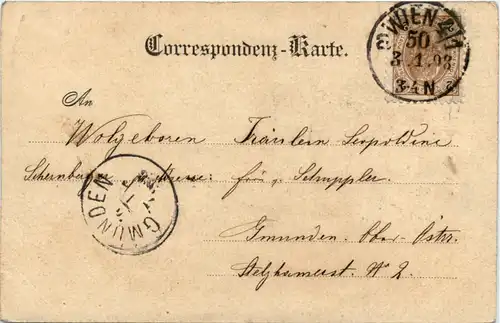 Correspondenz-Karte.
WIEN
50
3.1.98
3-4N
An
Wolgeboren Fräulein Leopoldine
Adresse:
Gmunden. Ober-Östr.
Stelzhamerst. No 2.
GMUNDEN